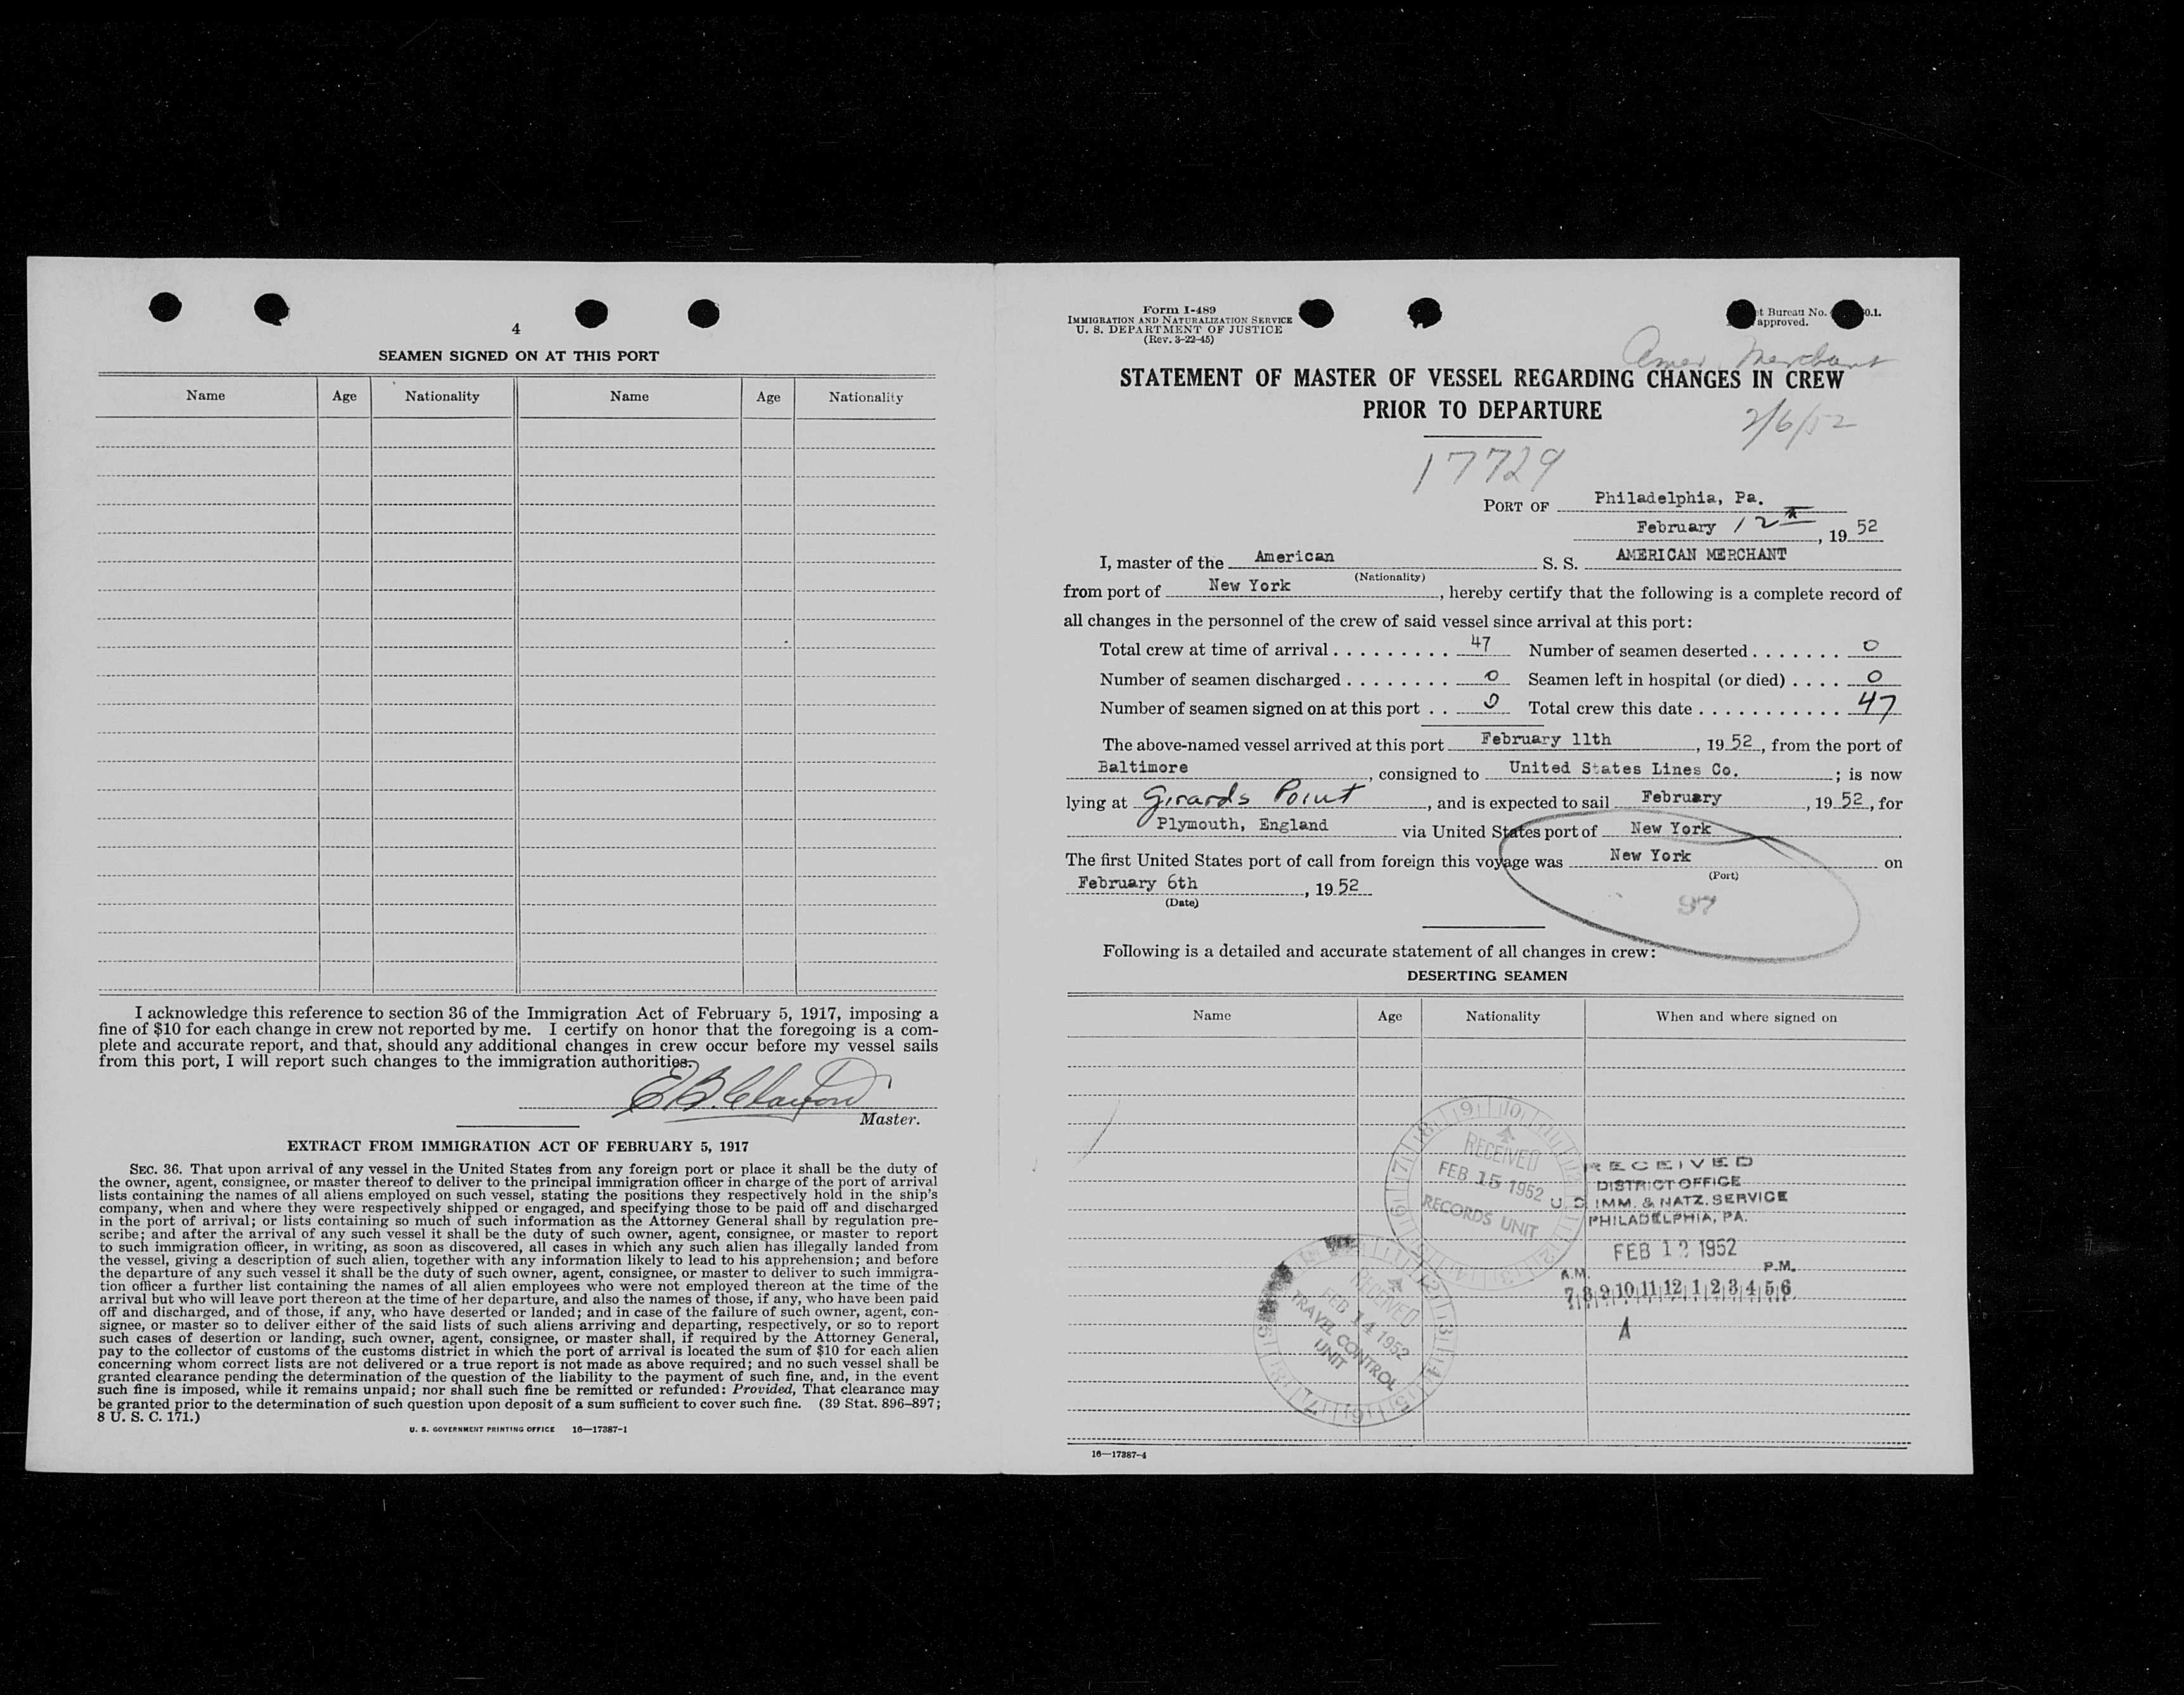 4
SEAMEN SIGNED ON AT THIS PORT
Name Age Nationality Name Age Nationality
I acknowledge this reference to section 36 of the Immigration Act of February 5, 1917, imposing a
fine of $10 for each change in crew not reported by me. I certify on honor that the foregoing is a com-
plete and accurate report, and that, should any additional changes in crew occur before my vessel sails
from this port, I will report such changes to the immigration authorities.
Master.
EXTRACT FROM IMMIGRATION ACT OF FEBRUARY 5, 1917
SEC. 36. That upon arrival of any vessel in the United States from any foreign port or place it shall be the duty of
the owner, agent, consignee, or master thereof to deliver to the principal immigration officer in charge of the port of arrival
lists containing the names of all aliens employed on such vessel, stating the positions they respectively hold in the ship's
company, when and where they were respectively shipped or engaged, and specifying those to be paid off and discharged
in the port of arrival; or lists containing so much of such information as the Attorney General shall by regulation pre-
scribe; and after the arrival of any such vessel it shall be the duty of such owner, agent, consignee, or master to report
to such immigration officer, in writing, as soon as discovered, all cases in which any such alien has illegally landed from
the vessel, giving a description of such alien, together with any information likely to lead to his apprehension; and before
the departure of any such vessel it shall be the duty of such owner, agent, consignee, or master to deliver to such immigra-
tion officer a further list containing the names of all alien employees who were not employed thereon at the time of the
arrival but who will leave port thereon at the time of her departure, and also the names of those, if any, who have been paid
off and discharged, and of those, if any, who have deserted or landed; and in case of the failure of such owner, agent, con-
signee, or master so to deliver either of the said lists of such aliens arriving and departing, respectively, or so to report
such cases of desertion or landing, such owner, agent, consignee, or master shall, if required by the Attorney General,
pay to the collector of customs of the customs district in which the port of arrival is located the sum of $10 for each alien
concerning whom correct lists are not delivered or a true report is not made as above required; and no such vessel shall be
granted clearance pending the determination of the question of the liability to the payment of such fine, and, in the event
such fine is imposed, while it remains unpaid; nor shall such fine be remitted or refunded: Provided, That clearance may
be granted prior to the determination of such question upon deposit of a sum sufficient to cover such fine. (39 Stat. 896–897;
8 U. S. C. 171.)
U. S. GOVERNMENT PRINTING OFFICE 16—17387-1
Form I-489
IMMIGRATION AND NATURALIZATION SERVICE
U. S. DEPARTMENT OF JUSTICE
(Rev. 3-22-45)
Bureau No. 0.1.
approved.
Amer. Merchant
STATEMENT OF MASTER OF VESSEL REGARDING CHANGES IN CREW
PRIOR TO DEPARTURE
2/6/52
17729
PORT OF Philadelphia, Pa.
February 12th, 19 52
I, master of the American S. S. AMERICAN MERCHANT
(Nationality)
from port of New York, hereby certify that the following is a complete record of
all changes in the personnel of the crew of said vessel since arrival at this port:
Total crew at time of arrival . . . . . . . . . 47 Number of seamen deserted . . . . . . . 0
Number of seamen discharged . . . . . . . . 0 Seamen left in hospital (or died) . . . . 0
Number of seamen signed on at this port . . 0 Total crew this date . . . . . . . . . . . 47
The above-named vessel arrived at this port February 11th, 19 52, from the port of
Baltimore, consigned to United States Lines Co.; is now
lying at Girards Point, and is expected to sail February, 19 52, for
Plymouth, England via United States port of New York
The first United States port of call from foreign this voyage was New York on
(Port)
February 6th, 19 52
(Date)
97
Following is a detailed and accurate statement of all changes in crew:
DESERTING SEAMEN
Name Age Nationality When and where signed on
RECEIVED
FEB 15 1952
RECORDS UNIT
RECEIVED
DISTRICT OFFICE
U. S. IMM. & NATZ. SERVICE
PHILADELPHIA, PA.
FEB 12 1952
A.M. P.M.
7 8 9 10 11 12 1 2 3 4 5 6
A
RECEIVED
FEB 14 1952
TRAVEL CONTROL
UNIT
16—17387-4